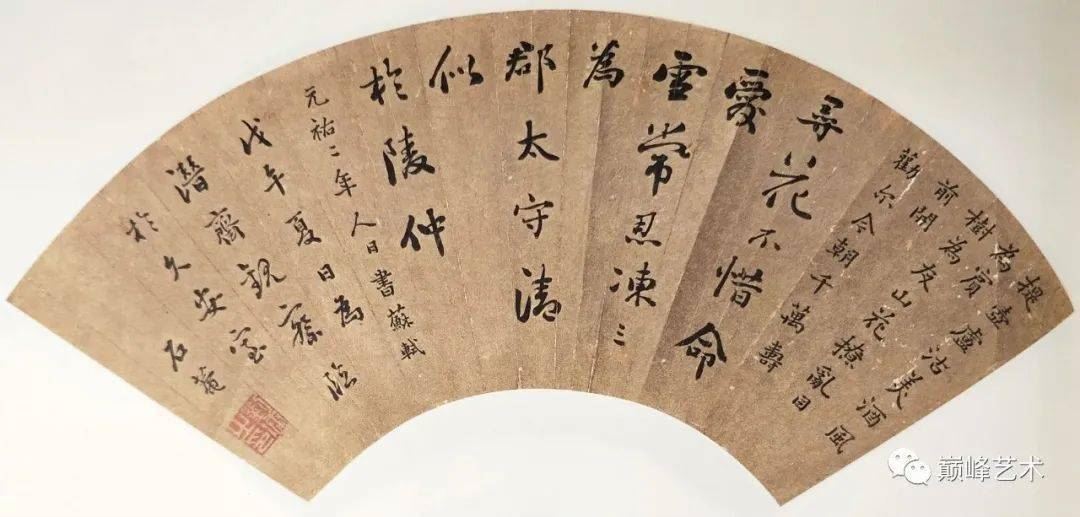 提壺盧沽美酒風
為賓
樹為友山花撩亂目
前開
勸尔今朝千萬壽
尋花不惜命
愛
雪常忍凍三
為
郡太守清
似
於陵仲
元祐二年人日書蘇軾
戊午夏日為
潛齋親家臨
於久安室
石菴
巅峰艺术